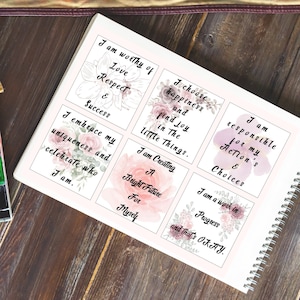 I am worthy of
Love
Respect
&
Success
I choose
happiness
and
find joy
in the
little things.
I am
responsible
for my
Action's
&
Choices
I embrace my
uniqueness and
celebrate who
I am.
I am Creating
A
Bright Future
For
Myself
I am a work in
Progress
and that's O.K.A.Y.